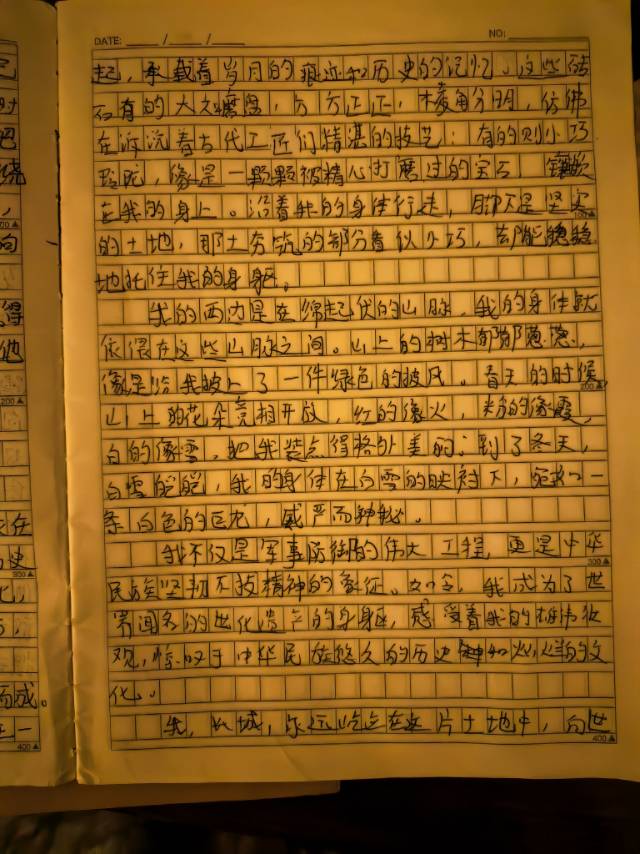 DATE: / /
NO:
起，承载着岁月的痕迹和历史的记忆。这些砖
石有的大如磨盘，方方正正，棱角分明，仿佛
在诉说着古代工匠们精湛的技艺；有的则小巧
玲珑，像是一颗颗被精心打磨过的宝石，镶嵌
在我的身上。沿着我的身体行走，脚下是坚实
的土地，那土夯筑的部分看似小巧，却能稳稳
地托住我的身躯。
我的西边是连绵起伏的山脉，我的身体就
依偎在这些山脉之间。山上的树木郁郁葱葱，
像是给我披上了一件绿色的披风。春天的时候
山上的花朵竞相开放，红的像火，粉的像霞，
白的像雪，把我装点得格外美丽；到了冬天，
白雪皑皑，我的身体在白雪的映衬下，宛如一
条白色的巨龙，威严而神秘。
我不仅是军事防御的伟大工程，更是中华
民族坚韧不拔精神的象征。如今，我成为了世
界闻名的文化遗产的身躯，感受着我的雄伟壮
观，惊叹于中华民族悠久的历史和灿烂的文
化。
我，长城，永远屹立在这片土地中，向世
100
200
300
400
200
300
400
他
史
而成。
在一